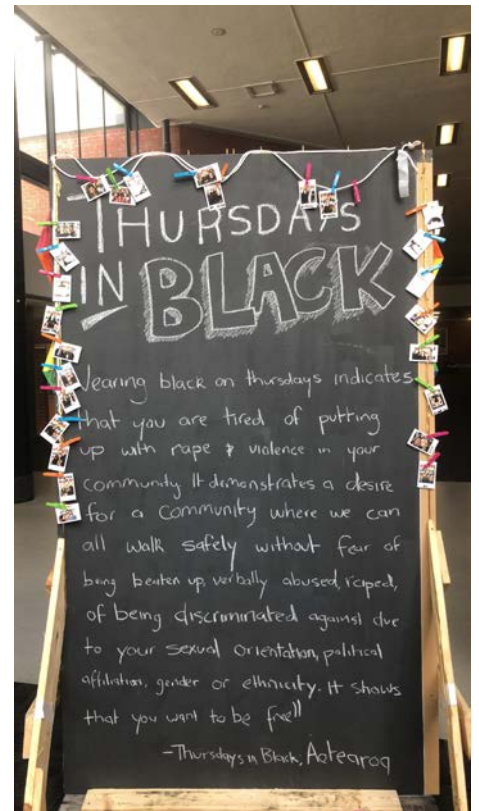 THURSDAYS
IN BLACK
Wearing black on thursdays indicates
that you are tired of putting
up with rape & violence in your
community It demonstrates a desire
for a community where we can
all walk safely without fear of
being beaten up, verbally abused, raped,
of being discriminated against due
to your sexual orientation, political
affiliation, gender or ethnicity. It shows
that you want to be free"
-Thursdays in Black, Aotearoa